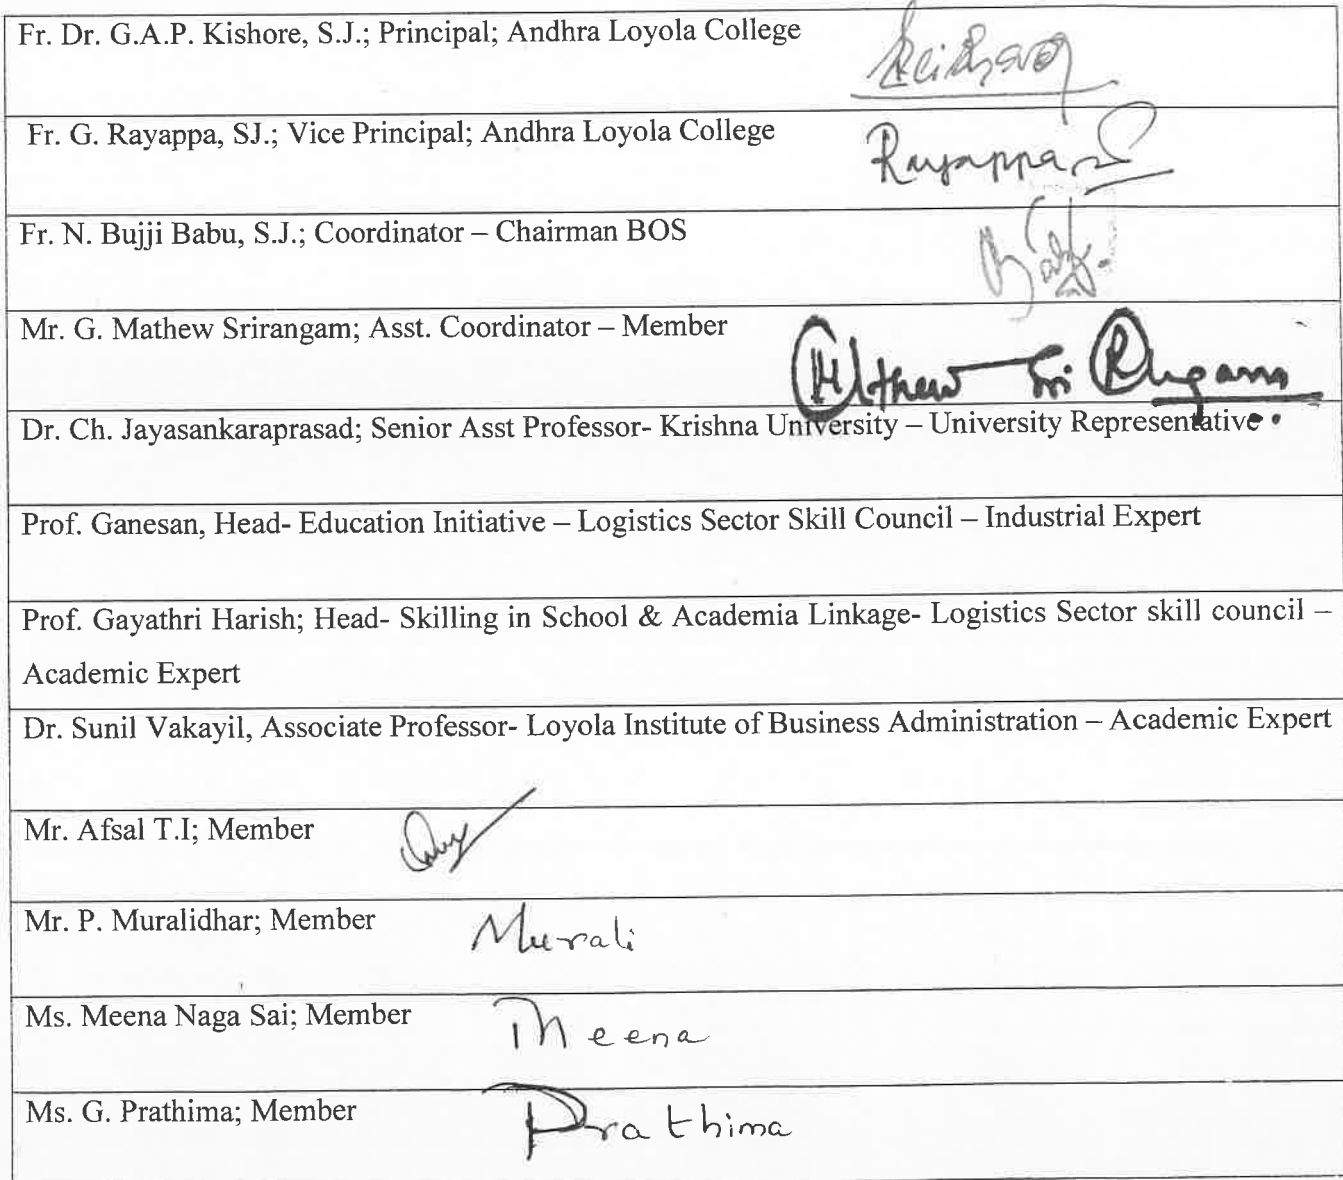 Fr. Dr. G.A.P. Kishore, S.J.; Principal; Andhra Loyola College
Fr. G. Rayappa, SJ.; Vice Principal; Andhra Loyola College
Rayappa
Fr. N. Bujji Babu, S.J.; Coordinator – Chairman BOS
Mr. G. Mathew Srirangam; Asst. Coordinator – Member
Dr. Ch. Jayasankaraprasad; Senior Asst Professor- Krishna University – University Representative
Prof. Ganesan, Head- Education Initiative – Logistics Sector Skill Council – Industrial Expert
Prof. Gayathri Harish; Head- Skilling in School & Academia Linkage- Logistics Sector skill council –
Academic Expert
Dr. Sunil Vakayil, Associate Professor- Loyola Institute of Business Administration – Academic Expert
Mr. Afsal T.I; Member
Mr. P. Muralidhar; Member
Murali
Ms. Meena Naga Sai; Member
Meena
Ms. G. Prathima; Member
Prathima